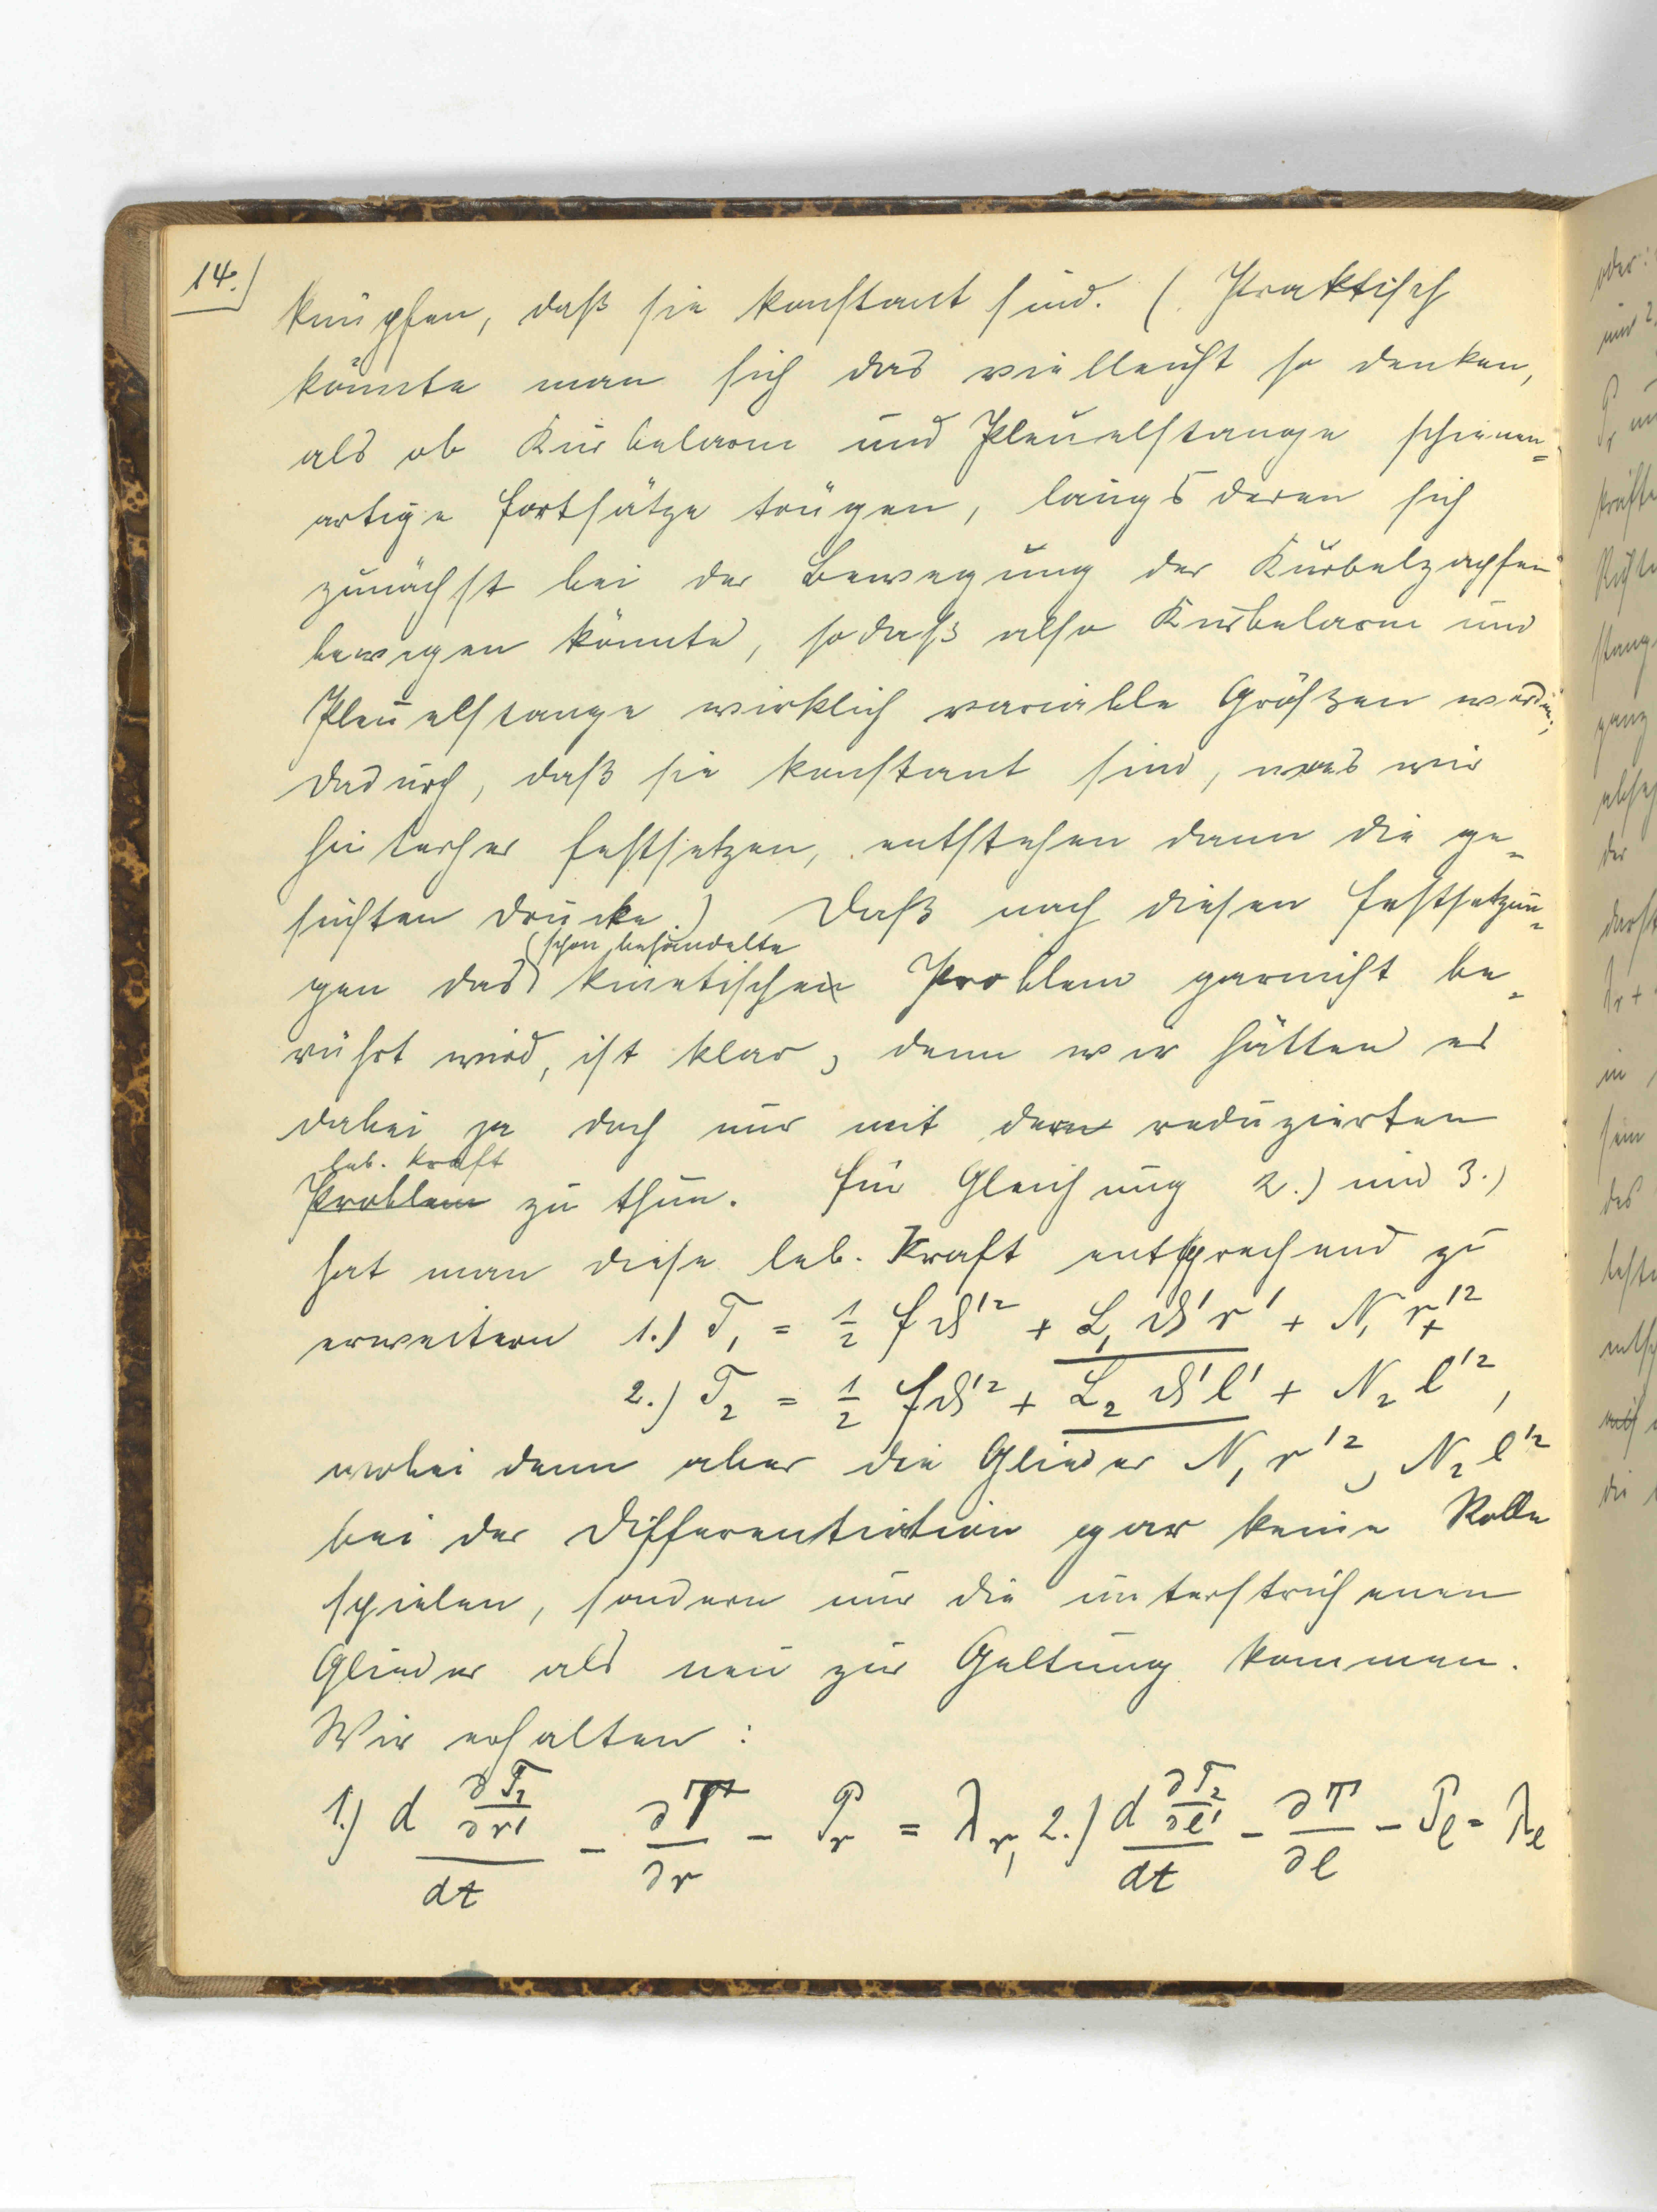 14.)
knüpfen, daß sie konstant sind. (Praktisch
könnte man sich das vielleicht so denken,
als ob Kurbelarm und Pleuelstange schienen-
artige Fortsätze trügen, längs deren sich
zunächst bei der Bewegung der Kurbelzapfen
bewegen könnte, sodaß also Kurbelarm und
Pleuelstange wirklich variable Größen werden;
dadurch, daß sie konstant sind, was wir
hinterher festsetzen, entstehen dann die ge-
suchten Drucke.) Daß nach diesen Festsetzun-
(schon behandelte
gen das kinetische Problem garnicht be-
rührt wird, ist klar, denn wir hätten es
dabei ja doch nur mit der reduzierten
leb. Kraft
Problem zu thun. Für Gleichung 2.) und 3.)
hat man diese leb. Kraft entsprechend zu
erweitern 1.) T₁ = 1/2 f ϑ'² + L₁ ϑ' r' + N₁ r'²
2.) T₂ = 1/2 f ϑ'² + L₂ ϑ' l' + N₂ l'²,
wobei denn aber die Glieder N₁ r'², N₂ l'²
bei der Differentiation gar keine Rolle
spielen, sondern nur die unterstrichenen
Glieder als neu zur Geltung kommen.
Wir erhalten:
1.) d ∂T₁/∂r' / dt - ∂T/∂r - P_r = λ_r, 2.) d ∂T₂/∂l' / dt - ∂T/∂l - P_l = λ_l